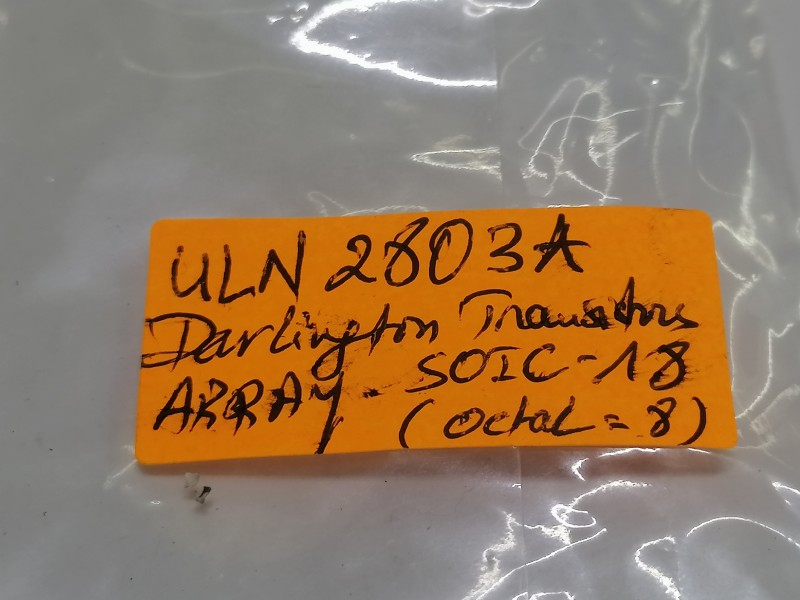 ULN 2803A
Darlington Transistors
ARRAY - SOIC-18
(Octal = 8)